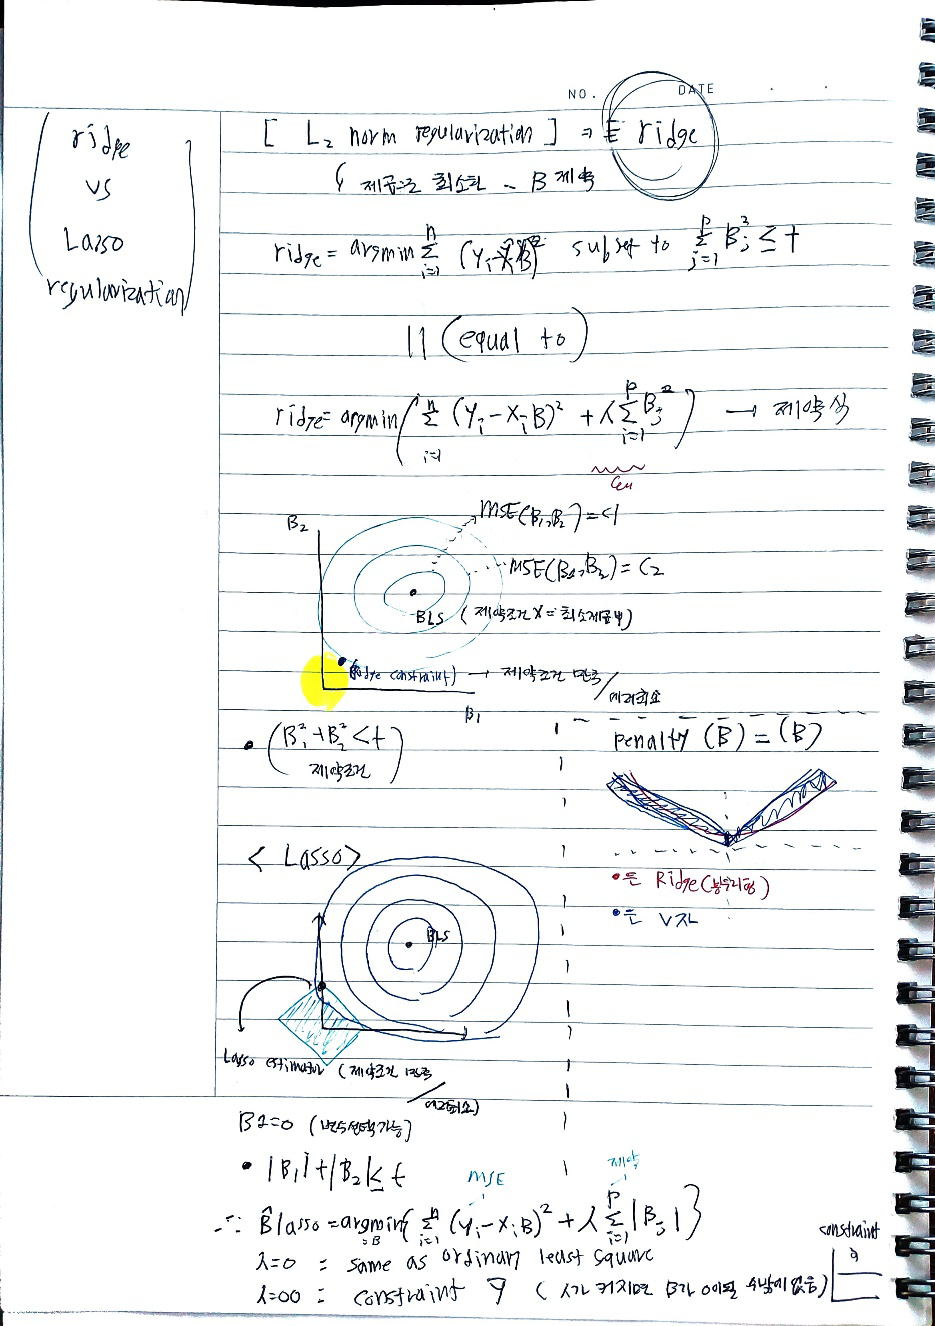 NO. DATE
ridge
vs
Lasso
regularization
[ L₂ norm regularization ] ⇒ ridge
제곱근 최소화 - B 제약
ridge = argmin Σ i=1 n (Yi-XiB)² subset to Σ j=1 p Bj² ≤ t
|| (equal to)
ridge = argmin( Σ i=1 n (Yi-XiB)² + λ Σ i=1 p Bj² ) → 제약식
B₂
MSE(B₁,B₂) = C1
MSE(B₁,B₂) = C₂
BLS (제약조건 X = 최소제곱)
(Ridge constraint) → 제약조건 만족/에러최소
B₁
• (B₁²+B₂² < t)
제약조건
penalty (B) = (B)
• 은 Ridge
• 는 V자
< Lasso>
BLS
Lasso estimator (제약조건 만족/에러최소)
B1=0 (변수선택가능)
• |B₁|+|B₂| ≤ t
MSE 제약
∴ B̂lasso = argmin =B { Σ i=1 n (Yi-XiB)² + λ Σ i=1 p |Bj| }
λ=0 : same as ordinary least square
λ=∞ : constraint (λ가 커지면 B가 0이될 수밖에 없음)
constraint